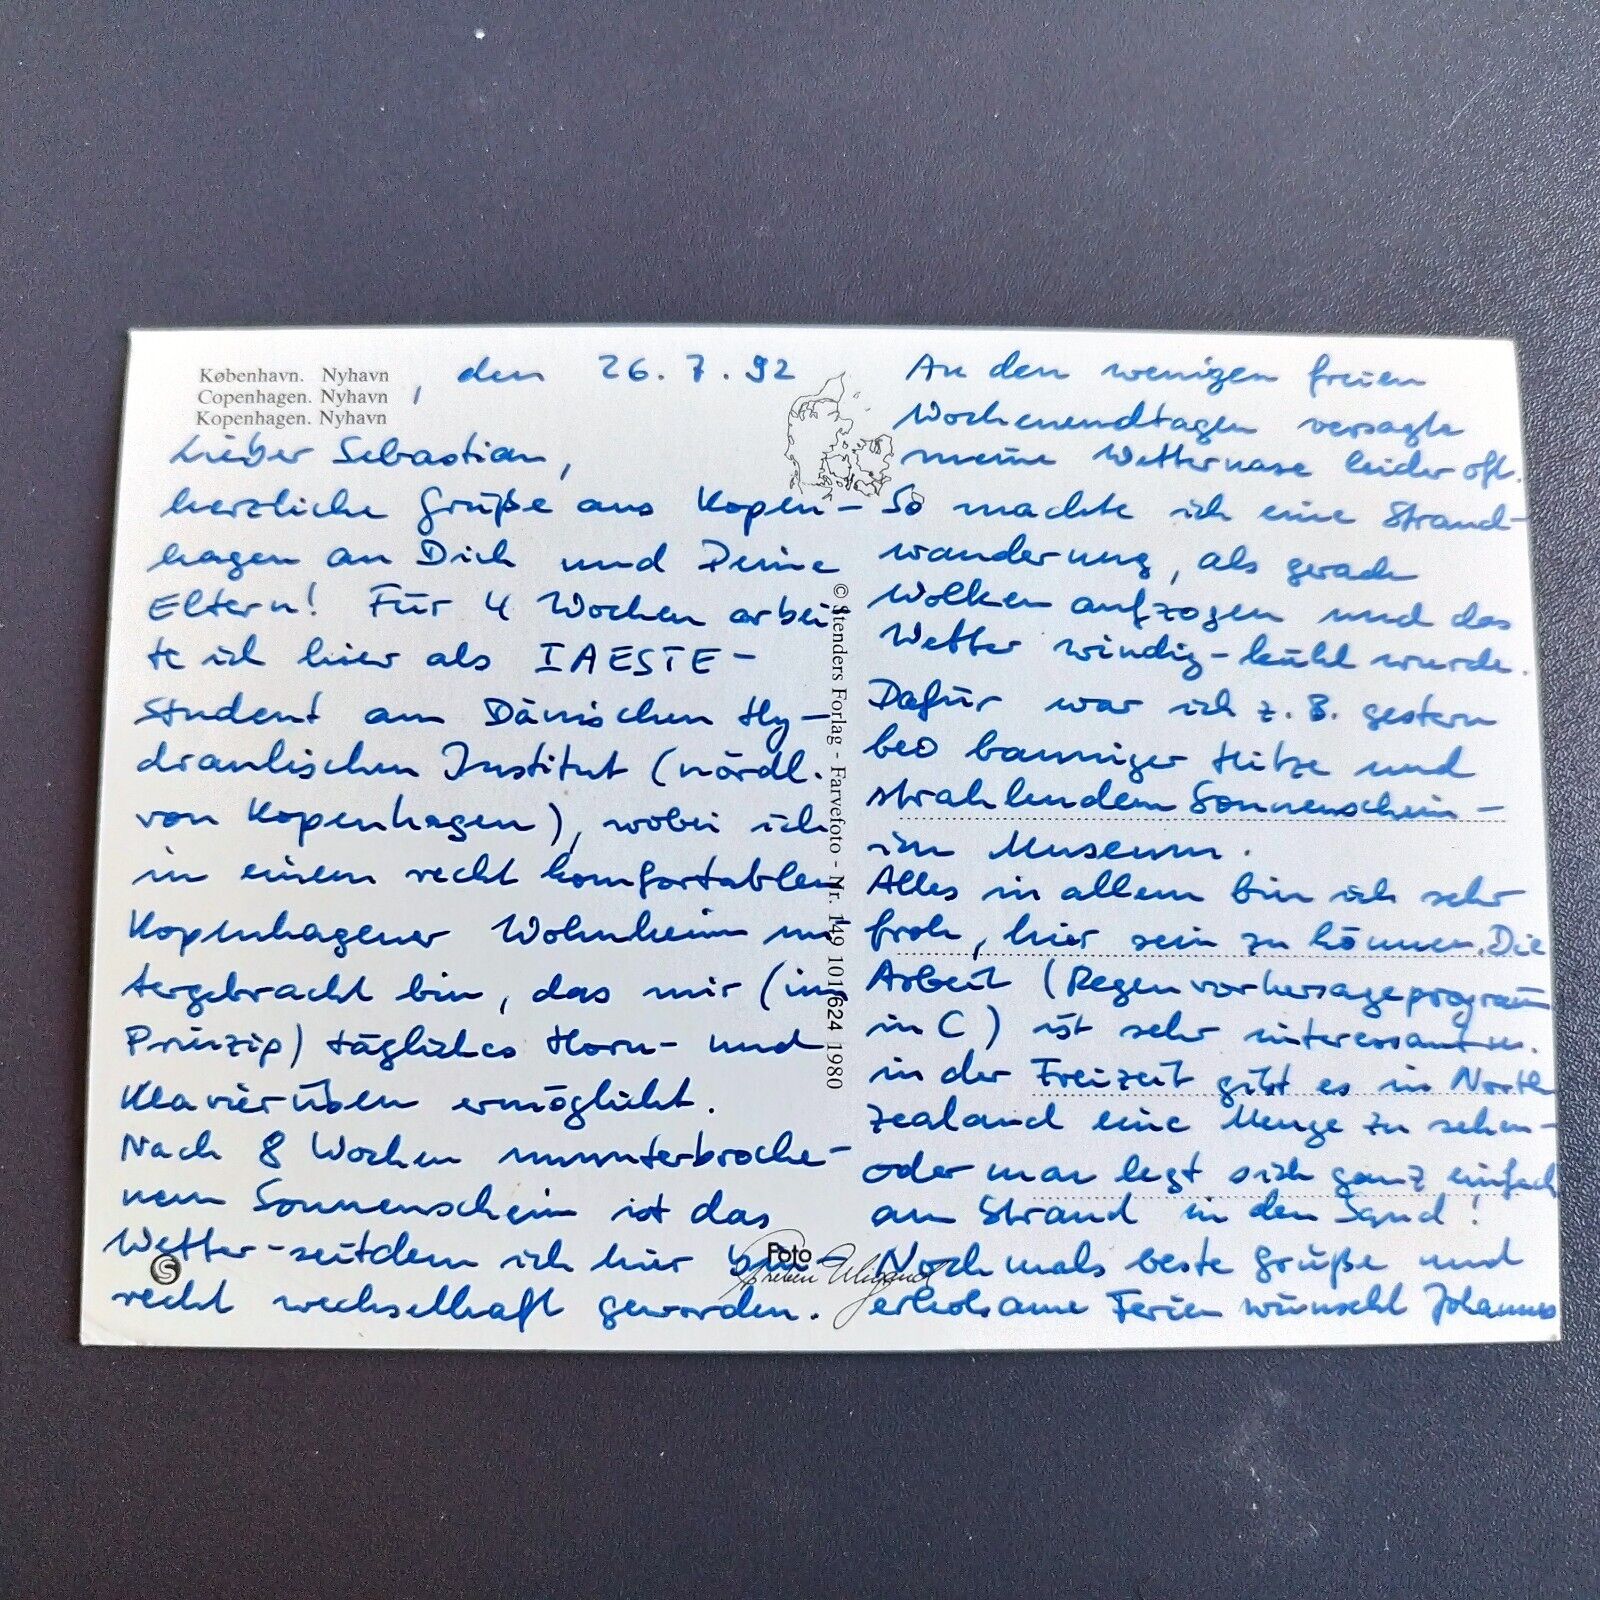 København. Nyhavn
Copenhagen. Nyhavn
Kopenhagen. Nyhavn
, den 26.7.92
Lieber Sebastian,
herzliche Grüße aus Kopen-
hagen an Dich und Deine
Eltern! Für 4 Wochen arbei
te ich hier als IAESTE-
Student am Dänischen Hy-
draulischen Institut (nördl.
von Kopenhagen), wobei ich
in einem recht komfortablen
Kopenhagener Wohnheim un
tergebracht bin, das mir (im
Prinzip) tägliches Horn- und
Klavierüben ermöglicht.
Nach 8 Wochen ununterbroche-
nem Sonnenschein ist das
Wetter - seitdem ich hier bin -
recht wechselhaft geworden.
An den wenigen freien
Wochenendtagen versagte
meine Wetternase leider oft.
So machte ich eine Strand-
wanderung, als gerade
Wolken aufzogen und das
Wetter windig-kühl wurde.
Dafür war ich z.B. gestern
bei banniger Hitze und
strahlendem Sonnenschein -
im Museum.
Alles in allem bin ich sehr
froh, hier sein zu können. Die
Arbeit (Regenvorhersageprogramm
in C) ist sehr interessant u.
in der Freizeit gibt es in North
Zealand eine Menge zu sehen -
oder man legt sich ganz einfach
am Strand in den Sand!
Nochmals beste Grüße und
erholsame Ferien wünscht Johannes
© Stenders Forlag - Farvefoto - Nr. 149 101/624 1980
Foto
Preben Wigand
S